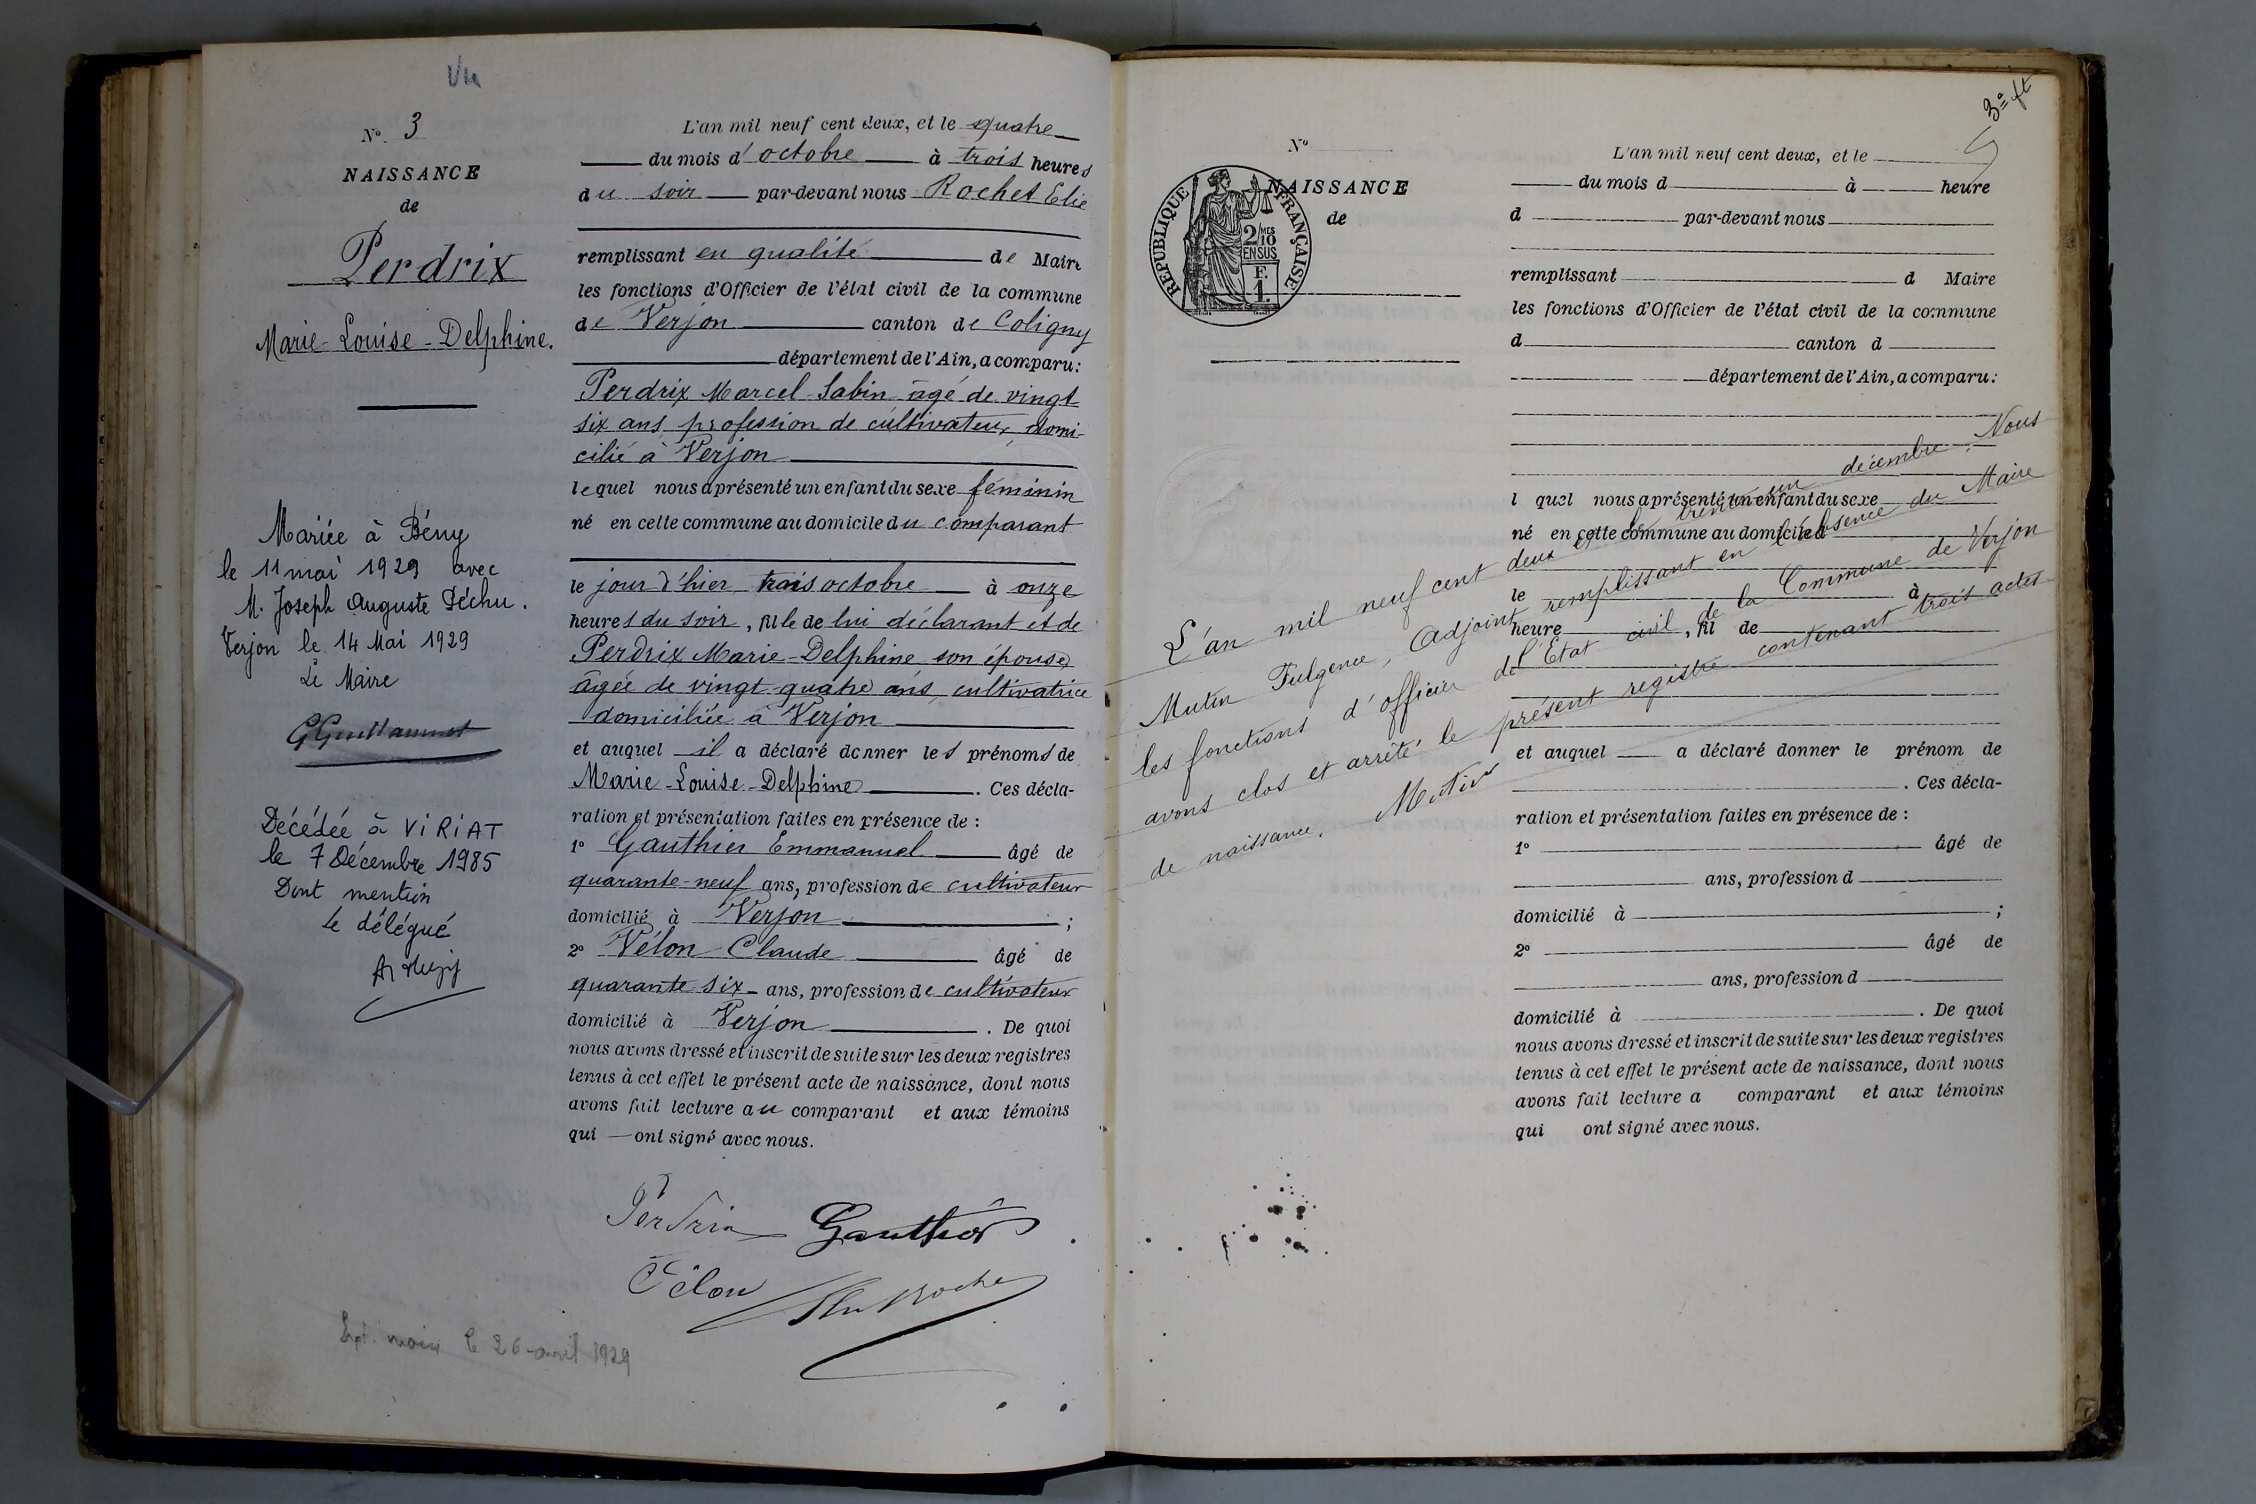 Vu
N° 3
NAISSANCE
de
Perdrix
Marie-Louise-Delphine.
Mariée à Bény
le 11 mai 1929 avec
M. Joseph Auguste Déchu.
Verjon le 14 Mai 1929
Le Maire
Décédée à VIRIAT
le 7 Décembre 1985
Dont mention
Le délégué
L'an mil neuf cent deux, et le quatre
du mois d'octobre à trois heures
du soir par-devant nous Rochet Elie
remplissant en qualité de Maire
les fonctions d'Officier de l'état civil de la commune
de Verjon canton de Coligny
département de l'Ain, a comparu:
Perdrix Marcel-Sabin âgé de vingt
six ans, profession de cultivateur, domi-
cilié à Verjon
lequel nous a présenté un enfant du sexe féminin
né en cette commune au domicile du comparant
le jour d'hier trois octobre à onze
heures du soir, fille de lui déclarant et de
Perdrix Marie-Delphine son épouse
âgée de vingt-quatre ans, cultivatrice
domiciliée à Verjon
et auquel il a déclaré donner les prénoms de
Marie-Louise-Delphine. Ces décla-
ration et présentation faites en présence de :
1° Gauthier Emmanuel âgé de
quarante-neuf ans, profession de cultivateur
domicilié à Verjon ;
2° Vélon Claude âgé de
quarante six ans, profession de cultivateur
domicilié à Verjon. De quoi
nous avons dressé et inscrit de suite sur les deux registres
tenus à cet effet le présent acte de naissance, dont nous
avons fait lecture au comparant et aux témoins
qui — ont signé avec nous.
Perdrix Gauthier
Vélon
le 26 avril 1929
3e ft
N°
NAISSANCE
de
RÉPUBLIQUE FRANÇAISE
2/10 MES
EN SUS
F.
1.
L'an mil neuf cent deux, et le
du mois d à heure
d par-devant nous
remplissant d Maire
les fonctions d'Officier de l'état civil de la commune
d canton d
département de l'Ain, a comparu:
l quel nous a présenté un enfant du sexe
né en cette commune au domicile d
le à
heure , fil de
et auquel a déclaré donner le prénom de
. Ces décla-
ration et présentation faites en présence de :
1° âgé de
ans, profession d
domicilié à ;
2° âgé de
ans, profession d
domicilié à . De quoi
nous avons dressé et inscrit de suite sur les deux registres
tenus à cet effet le présent acte de naissance, dont nous
avons fait lecture a comparant et aux témoins
qui ont signé avec nous.
L'an mil neuf cent deux et le trente un décembre. Nous
Mutin Fulgence, Adjoint remplissant en l'absence du Maire
les fonctions d'officier de l'Etat civil de la Commune de Verjon
avons clos et arrêté le présent registre contenant trois actes
de naissance. Mutin